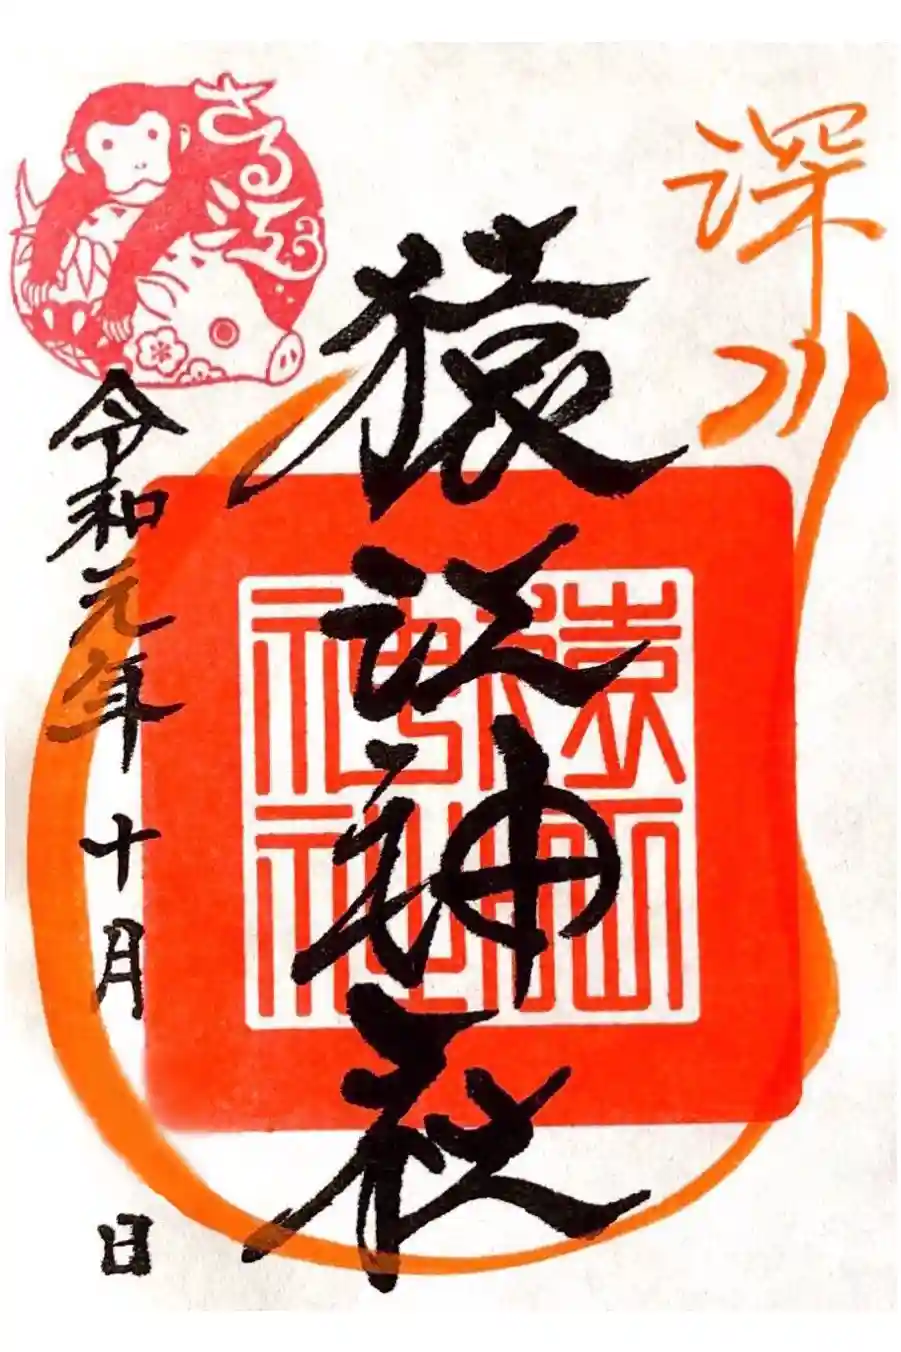 深川
猿江神社
猿江神社
さる江
令和元年
十月
日